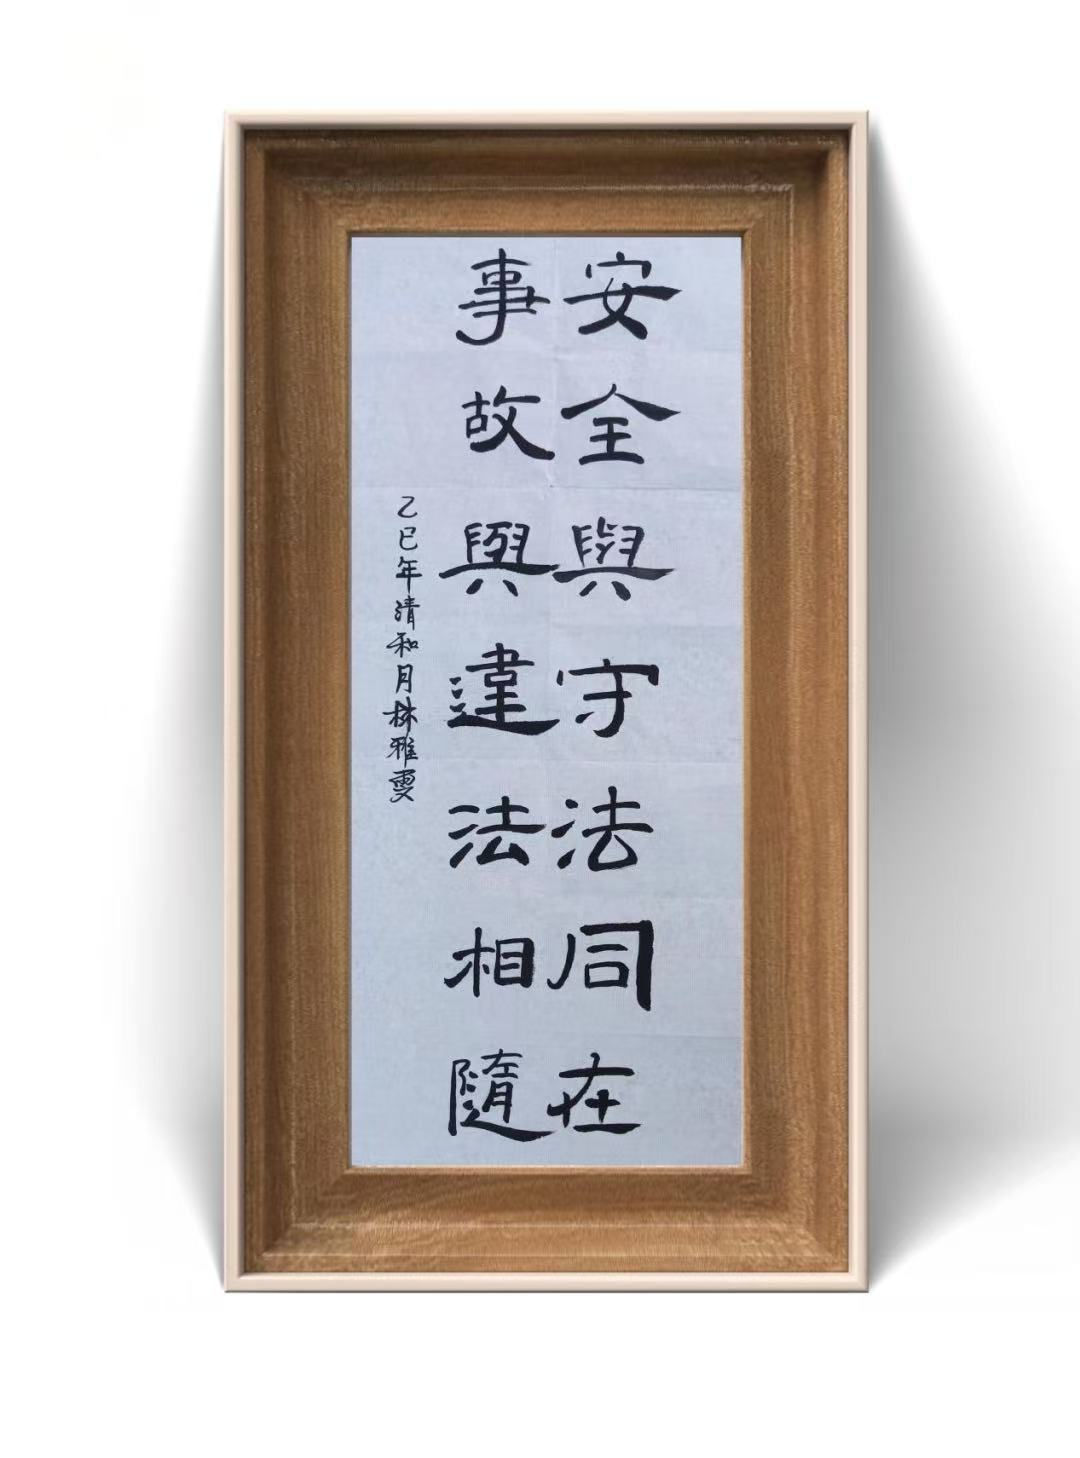 安全與守法同在
事故與違法相隨
乙巳年清和月林雅雯